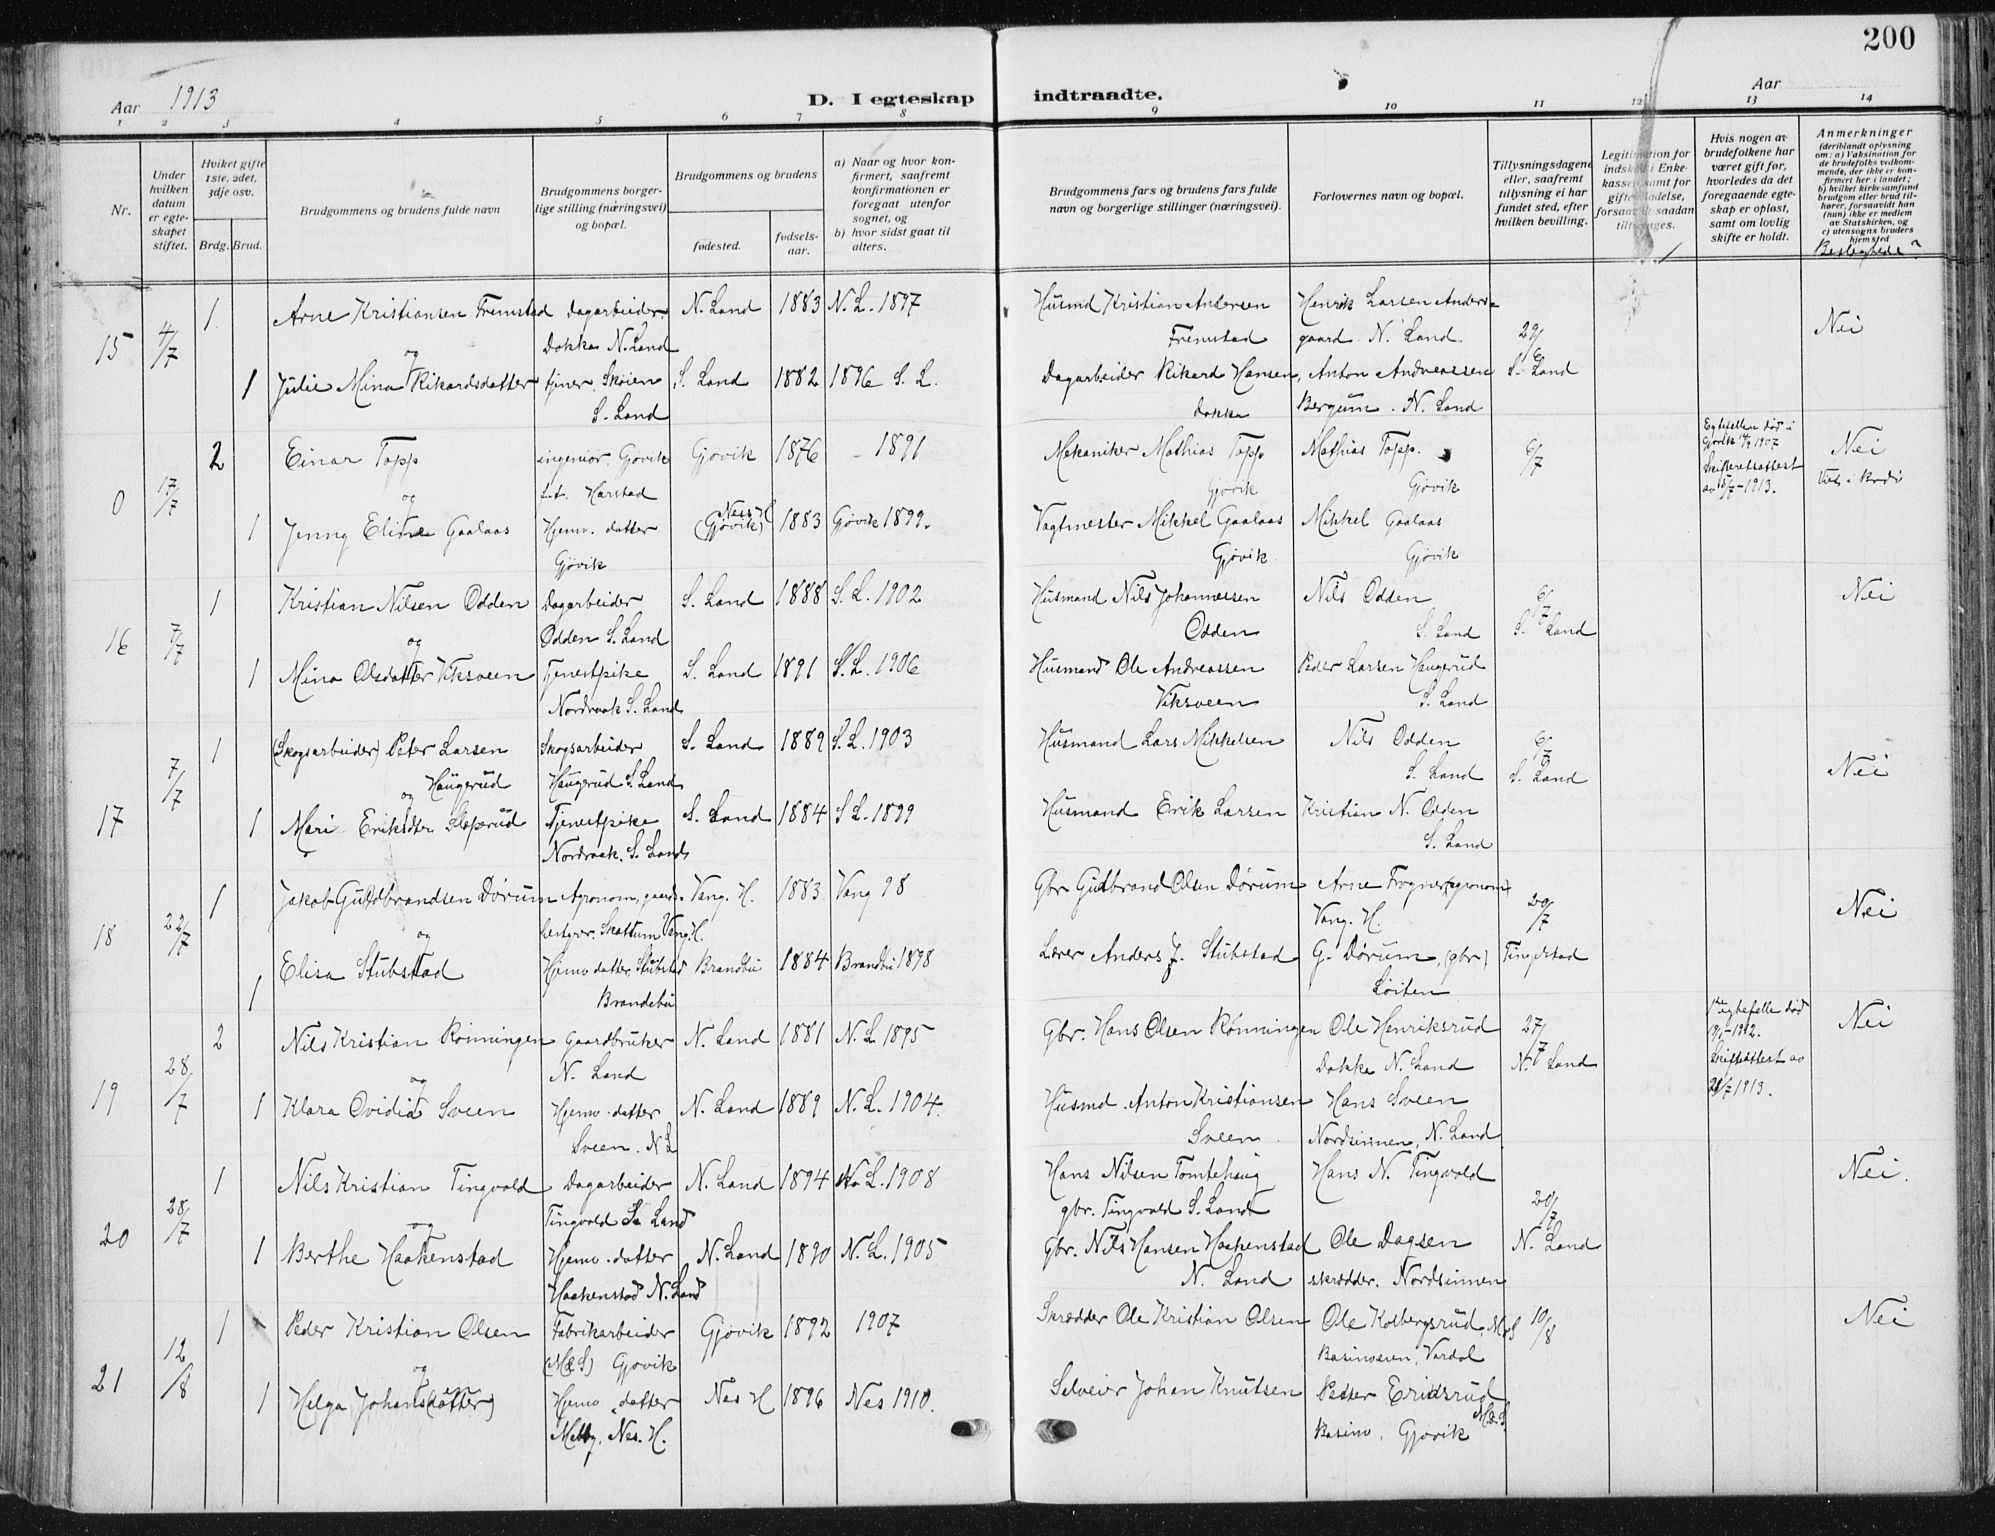 200
Aar 1913
D. I egteskap indtraadte.
Aar
1 2 3 4 5 6 7 8 9 10 11 12 13 14
Nr.
Under hvilken datum er egteskapet stiftet.
Hvilket gifte 1ste, 2det, 3dje osv.
Brdg. Brud.
Brudgommens og brudens fulde navn
Brudgommens borgerlige stilling (næringsvei) og bopæl.
Brudgommens og brudens
fødested.
fødselsaar.
a) Naar og hvor konfirmert, saafremt konfirmationen er foregaat utenfor sognet, og
b) hvor sidst gaat til alters.
Brudgommens fars og brudens fars fulde navn og borgerlige stillinger (næringsvei).
Forlovernes navn og bopæl.
Tillysningsdagene eller, saafremt tillysning ei har fundet sted, efter hvilken bevilling.
Legitimation for indskud i Enkekassen samt for giftetilladelse, forsaavidt saadan tiltrænges.
Hvis nogen av brudefolkene har været gift før, hvorledes da det foregaaende egteskap er opløst, samt om lovlig skifte er holdt.
Anmerkninger (deriblandt oplysning om: a) Vaksination for de brudefolks vedkommende, der ikke er konfirmert her i landet; b) hvilket kirkesamfund brudgom eller brud tilhører, forsaavidt han (hun) ikke er medlem av Statskirken, og c) utensogns bruders hjemsted
Beslegtede?
15 4/7 1 Arne Kristiansen Fremstad Dagarbeider N. Land 1883 N. L. 1897 Husmd Kristian Andersen Henrik Larsen Anders- Nei
og Dokka N. Land Fremstad gaard N. Land 29/6
1 Julie Mina Rikardsdatter tjener Skøien S. Land 1882 1896 S. L. Dagarbeider Rikard Hansen, Anton Andreassen S. Land
S. Land Dokka Bergum. N. Land
0 17/7 2 Einar Topp ingeniør. Gjøvik Gjøvik 1876 - 1891 Mekaniker Mathias Topp Mathias Topp. 6/7 Egtefellen død i Gjøvik 1907 Nei
og f.t. Harstad Gjøvik Gjøvik Skifteretsattest av 5/7-1913.
1 Jenny Eline Gaalaas Hjemv. datter Nes H (Gjøvik) 1883 Gjøvik 1899. Vagtmester Mikkel Gaalaas Mikkel Gaalaas
Gjøvik Gjøvik Gjøvik
16 7/7 1 Kristian Nilsen Odden Dagarbeider S. Land 1888 S. L. 1902 Husmand Nils Johannessen Nils Odden 6/7 Nei
og Odden S. Land Odden S. Land S. Land
1 Mina Olsdatter Viksveen Tjenestpike S. Land 1891 S. L. 1906 Husmand Ole Andreassen Peder Larsen Haugerud
Nordraak S. Land Viksveen S. Land
17 7/7 1 (Skogsarbeider) Peter Larsen Skogsarbeider S. Land 1889 S. L. 1903 Husmand Lars Mikkelsen Nils Odden 6/7 Nei
og Haugerud Haugerud S. Land S. Land S. Land
1 Mari Eriksdtr Tjenestpike S. Land 1884 S. L. 1899 Husmand Erik Larsen Kristian N. Odden
Nordraak. S. Land S. Land
18 22/7 1 Jakob Guldbrandsen Dørum Agronom, gaards- Vang. H. 1883 Vang 98 Gbr Gutbrand Olsen Dørum Arne Fogner (agronom) 20/7 Nei
og bestyrer. Skattum Vang. H. Vang. H.
1 Elisa Stubstad Hjemv datter Stubstad Brandbu 1884 Brandbu 1898 Lærer Anders J. Stubstad G. Dørum, (gbr) Tingelstad
Brandebu Løiten
19 28/7 2 Nils Kristian Rønningen Gaardbruker N. Land 1881 N. L. 1895 Gbr. Hans Olsen Rønningen Ole Henriksrud 27/7 1ste egtefelle død 1912. Nei
og N. Land Dokka N. Land N. Land Skifteattest av 28/7 1913.
1 Klara Ovidia Sveen Hjemv. datter N. Land 1889 N. L. 1904. Husmd. Anton Kristiansen Hans Sveen
Sveen. N L Sveen Nordsinnen, N. Land
20 28/7 1 Nils Kristian Tingvold Dagarbeider N. Land 1894 N. L. 1908 Hans Nilsen Tomtehaug Hans N. Tingvold 20/7 Nei.
og Tingvold S. Land gbr. Tingvold S. Land
1 Berthe Haakenstad Hjemv. datter N. Land 1890 N. L. 1905 gbr. Nils Hansen Haakenstad Ole Dagsen N. Land
Haakenstad N. Land N. Land skrædder. Nordsinnen
21 12/8 1 Peder Kristian Olsen Fabrikarbeider Gjøvik 1892 1907 Skrædder Ole Kristian Olsen Ole Kolbergsrud, 10/8 Nei
og (M&S) Gjøvik Vardal
1 Helga Johans(datter) Hjemv. datter Nes H 1896 Nes 1910. Selveier Johan Knutsen Petter Eriksrud M&S.
Melby. Nes. H. Gjøvik